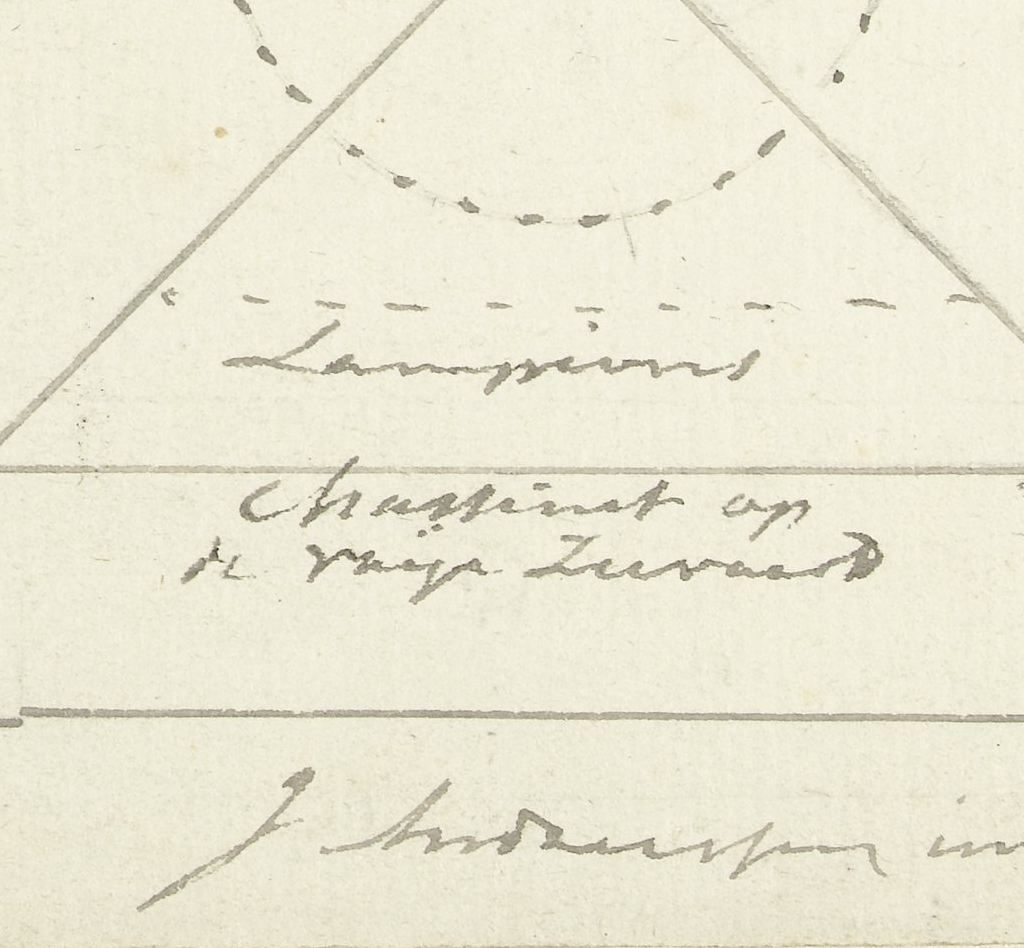 Lampions
Chassinet op
de vrije Zuvaard
J Andriessen in